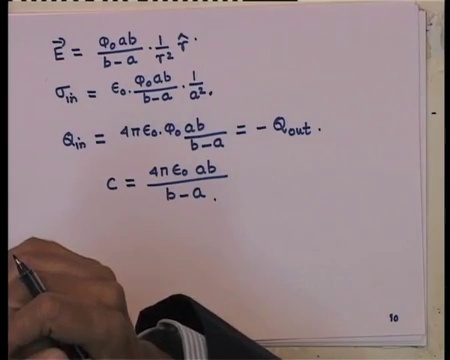 E⃗ = φ₀ab/(b−a) · 1/r² r̂.
σin = ε₀. φ₀ab/(b−a) · 1/a².
Qin = 4πε₀. φ₀ab/(b−a) = − Qout.
C = 4πε₀ab/(b−a).
10